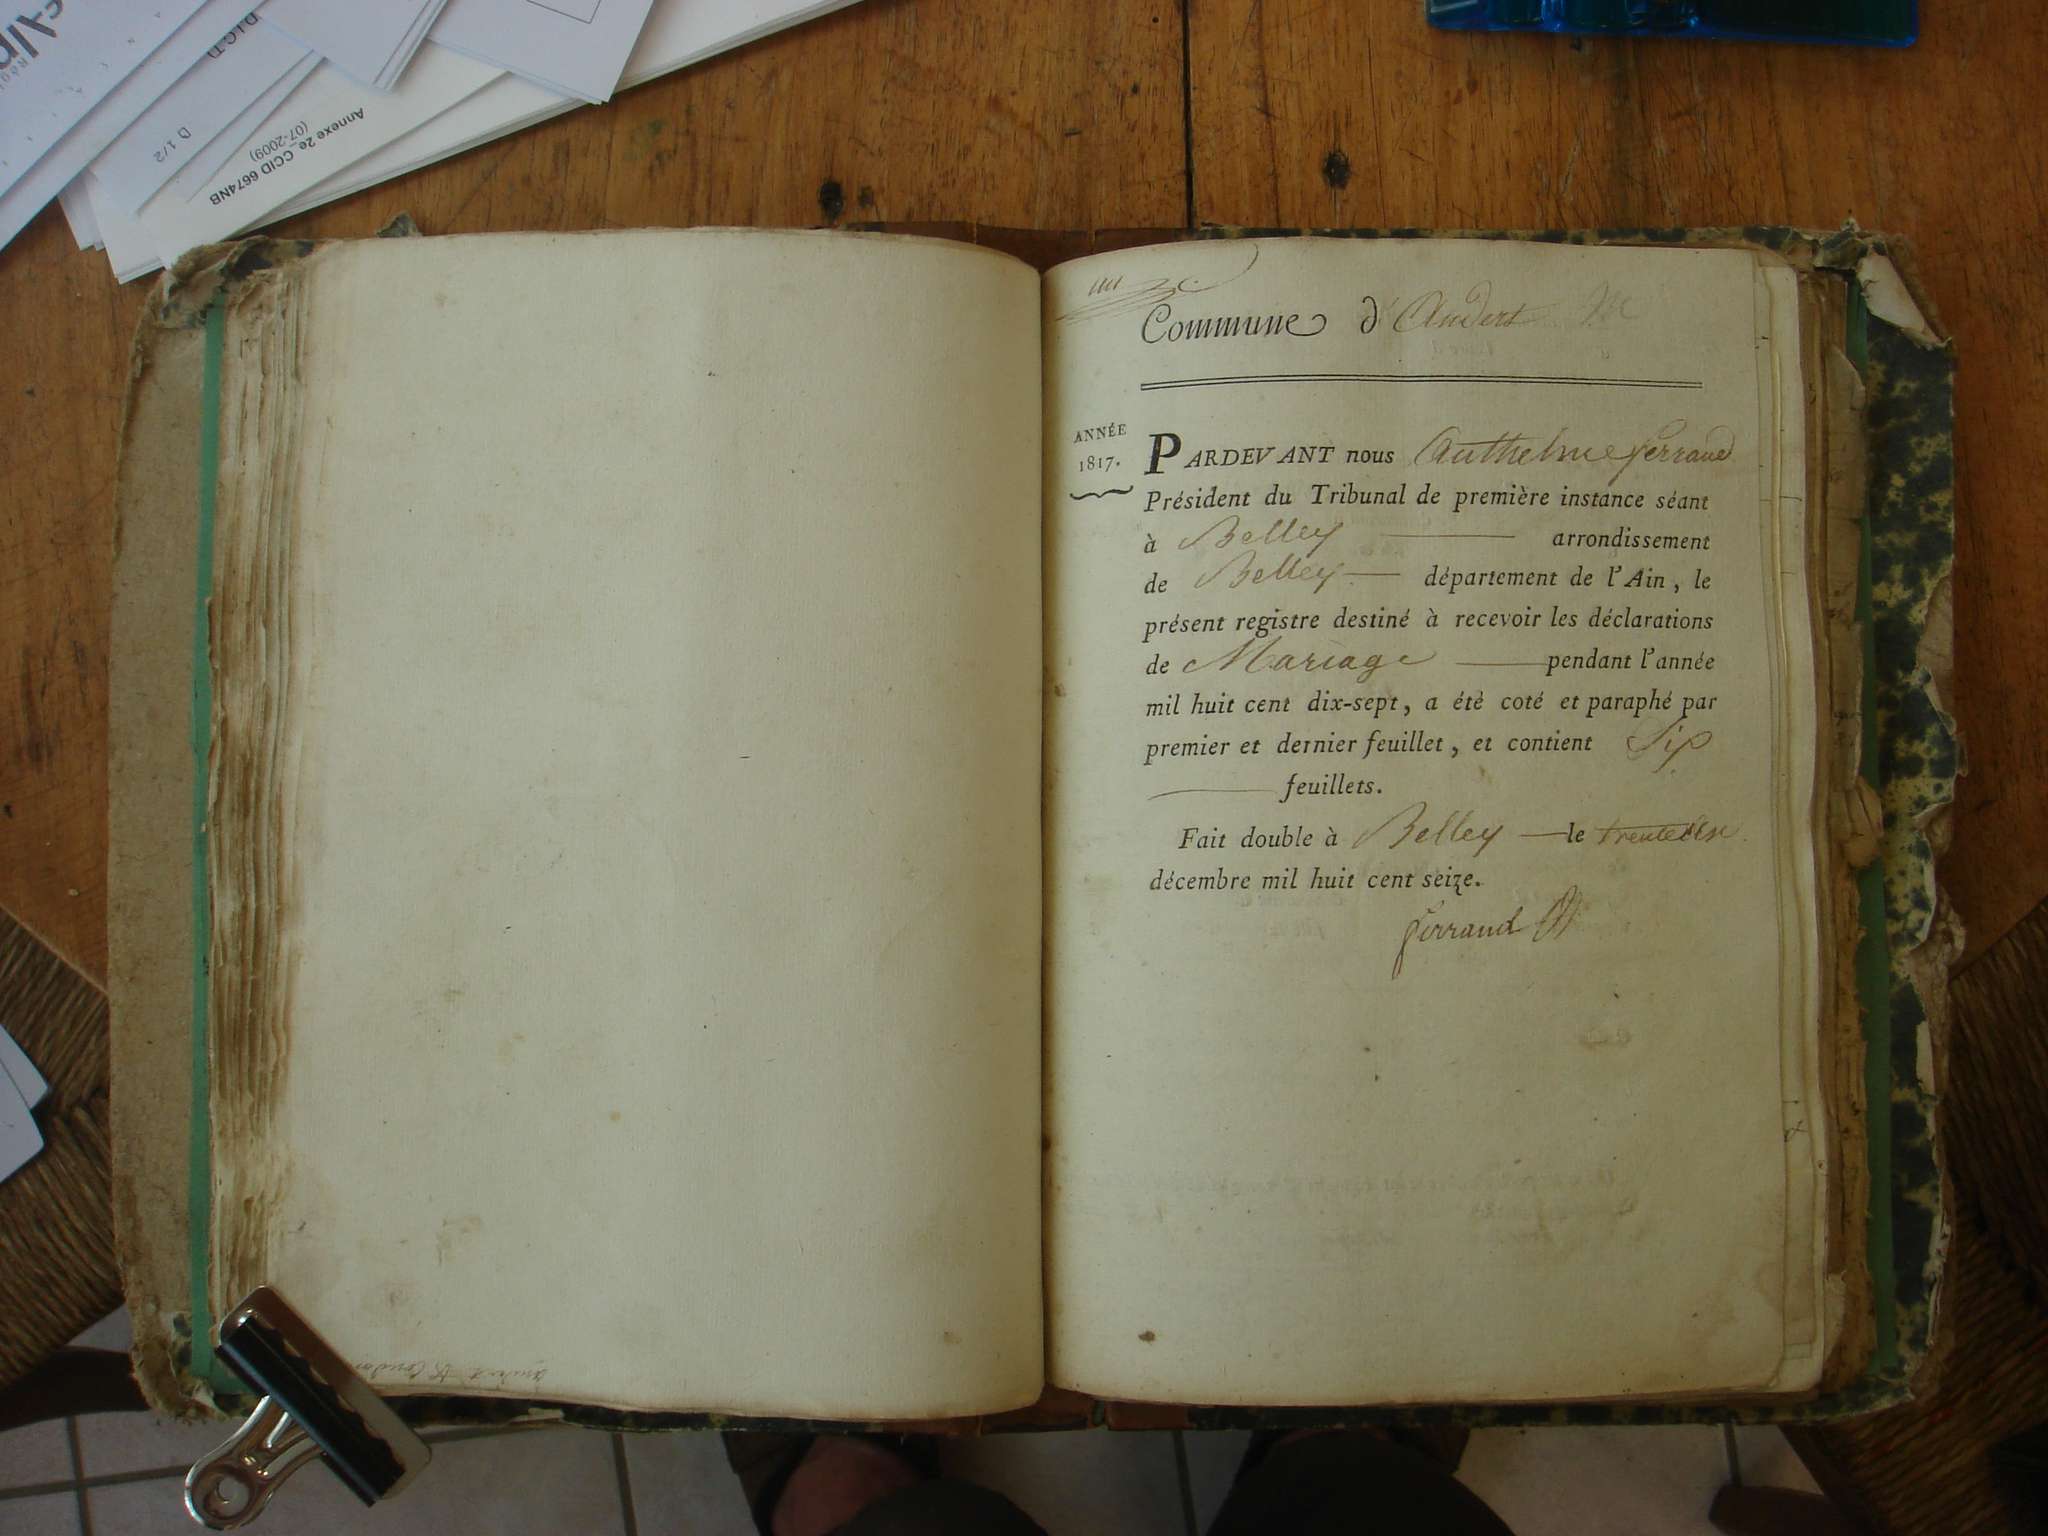 D 1/2
Annexe 2e_CCID 6674NB
(07-2009)
Commune d'Andert
ANNÉE
1817.
PARDEVANT nous Anthelme ferrand
Président du Tribunal de première instance séant
à Belley arrondissement
de Belley département de l'Ain, le
présent registre destiné à recevoir les déclarations
de Mariage pendant l'année
mil huit cent dix-sept, a étè coté et paraphé par
premier et dernier feuillet, et contient Six
feuillets.
Fait double à Belley le trente
décembre mil huit cent seize.
ferrand